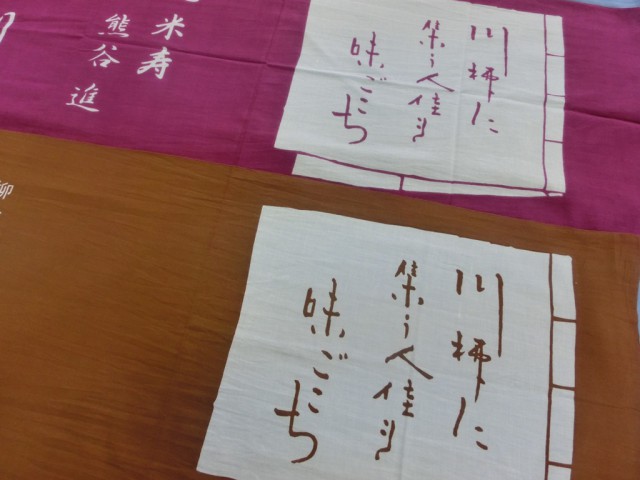 川柳に
集う人佳き
味ごこち
米寿
熊谷 進
川柳に
集う人佳き
味ごこち
柳